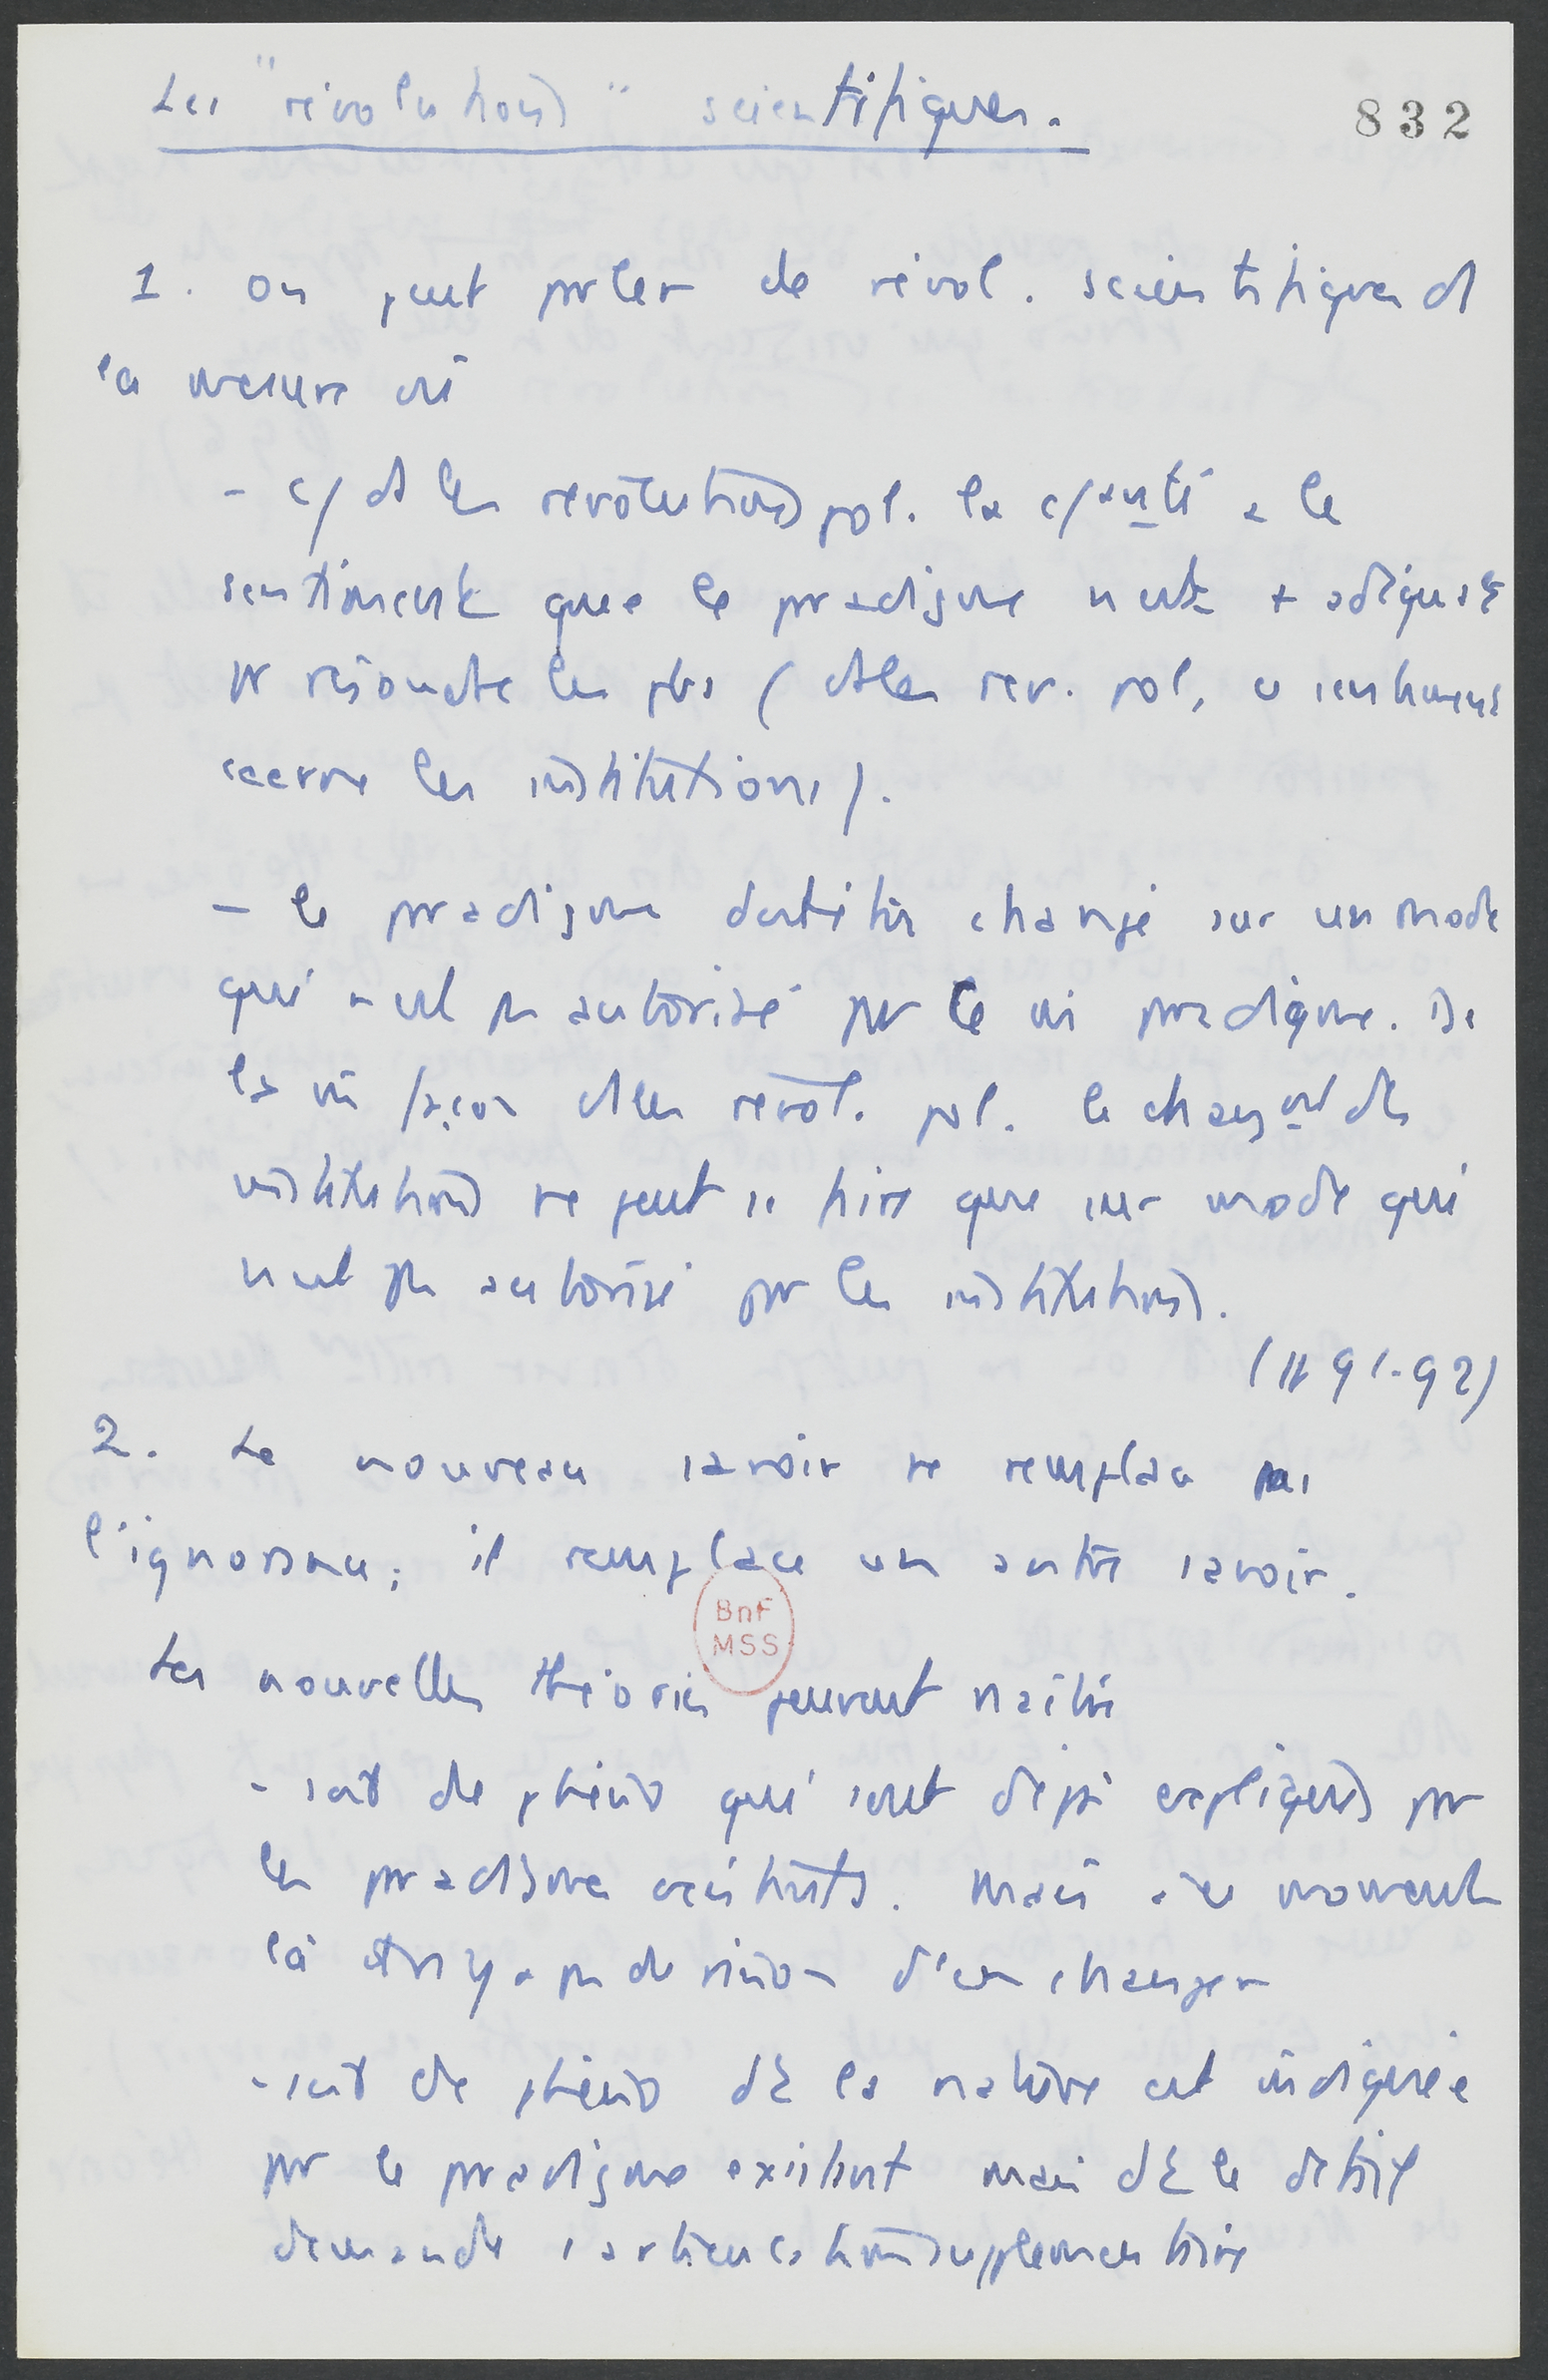 Les "révolutions" scientifiques.
832
1. On peut parler de révol. scientifiques ds
la mesure où
- c/ ds les révolutions pol. la c/auté a le
sentiment que le paradigme n'est + adéquat
pr résoudre les pbs (ds les rev. pol, ce sentiment
les institutions).
- le paradigme doit être changé sur un mode
qui n'est pas autorisé par le paradigme. De
la m̂ façon ds les révol. pol. le changt des
institutions ne peut se faire que sur mode qui
n'est pas autorisé par les institutions.
(91-92)
2. Le nouveau savoir ne remplace pas
l'ignorance; il remplace un autre savoir.
BnF
MSS
Les nouvelles théories peuvent naître
- soit de phéno qui sont déjà expliqués par
les paradigmes existants. Mais à ce moment
là il n'y a pas de raison d'en changer
- soit de phéno dt la nature est indiquée
par le paradigme existant mais dt le détail
demande articulation supplémentaire